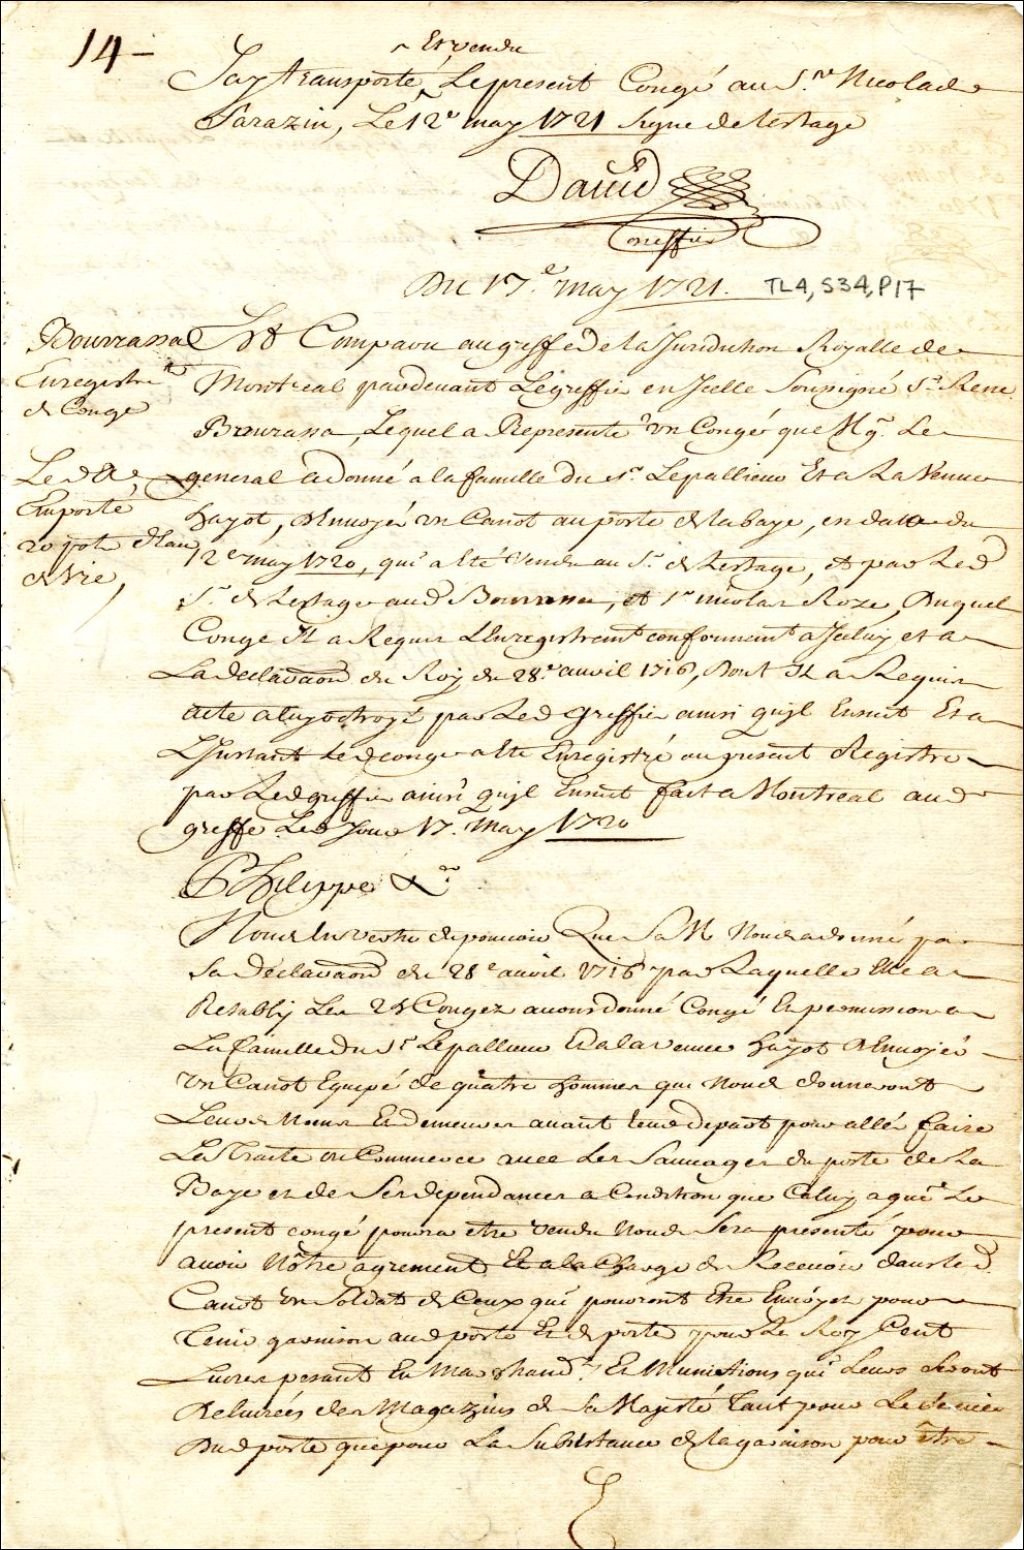 14 –
Et vendu
Jay transporté, Le present Congé au Sr. Nicolas
Sarazin, Le 12e may 1721 Signe de Lestage
David
Greffier
Du 17e. may 1721. TL4, S34, P17
Bourrassa
Enregistremt
de Congé
Est Comparu au greffe de la Juridiction Royalle de
Montreal pardevant Le greffier en Icelle Soussigné Sr. Rene
Bourassa, Lequel a Representé un Congé que Mgr. Le
Led A
Emporté
20 pots d'eau
de vie,
general a donné a la famille du sr. Lepallieur Et a La Veuve
hayot, d'Envoyer un Canot au poste de la baye, en datte du
12e may 1720, qui a Eté Vendu au Sr. de Lestage, et par Led
Sr. de Lestage aud Bourrassa, et Sr nicolas Roze, Duquel
Conge Il a Requis L'Enregistremt conformemt a Iceluy et a
La declaraon du Roy du 28e. avril 1716, Dont Il a Requis
acte a luy octroyé par Led Greffier ainsi qu'il Ensuit Et a
L'Instant Led conge a Eté Enregistré au present Registre
par Led greffier ainsi qu'il Ensuit fait a Montreal aud
greffe Led Jour 17. May 1720
Philippe &a
Nous En Vertu du pouvoir Que Sa M Nous a donné par
Sa Declaraon du 28e avril 1716 par Laquelle Elle a
Retably Les 25 Congez avons donné Congé Et permission a
La famille du Sr Lepallieur Et a la veuve hayot D'Envoyer
un Canot Equipé de quatre hommes qui Nous donneront
Leurs Noms Et demeures avant leur depart pour aller faire
La Traite ou Commerce avec Les Sauvages du poste de La
Baye et de Ses dependances a Condition que Celuy a qui Le
present congé poura etre Vendu Nous Sera presenté pour
avoir Nôtre agrement Et a la Charge de Recevoir dans led.
Canot un Soldat de Ceux qui pouront Etre Envoyez pour
Tenir garnison aud poste Et de porter pour Le Roy Cent
Livres pesant En Marchand. Et Munitions qui Leurs Seront
Delivrées des Magazins de Sa Majesté tant pour Le Service
Dud poste que pour La Subsistance de la garnison pour être